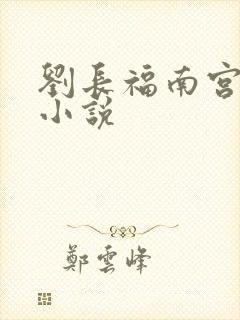 劉長福南宮
小說
鄭雲峰